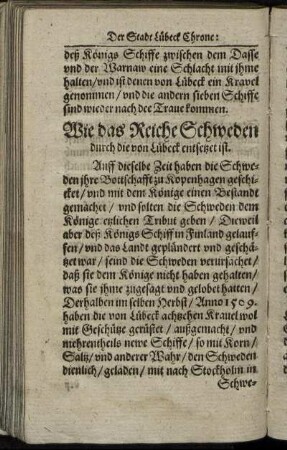 Der Stadt Lübeck Chronc:
deß Königs Schiffe zwischen dem Dasse
vnd der Warnaw eine Schlacht mit jhme
halten/vnd ist denen von Lübeck ein Kravel
genommen/ vnd die andern sieben Schiffe
sind wieder nach dee Traue kommen.
Wie das Reiche Schweden
durch die von Lübeck entsetzet ist.
Auff dieselbe Zeit haben die Schwe-
den jhre Bottschafft zu Kopenhagen geschi-
cket/ vnd mit dem Könige einen Bestandt
gemachet/ vnd solten die Schweden dem
Könige etzlichen Tribut geben/ Dieweil
aber deß Königs Schiff in Finland gelauf-
fen/ vnd das Landt geplündert vnd geschä-
tzet war/ seind die Schweden verursachet/
daß sie dem Könige nicht haben gehalten/
was sie jhme zugesagt vnd gelobet hatten/
Derhalben im selben Herbst/ Anno 1509.
haben die von Lübeck achtzehen Krauel wol
mit Geschütze gerüstet/ außgemacht/ vnd
mehrentheils newe Schiffe/ so mit Korn/
Saltz/ vnd anderer Wahr/ den Schweden
dienlich/ geladen/ mit nach Stockholm in
Schwe-